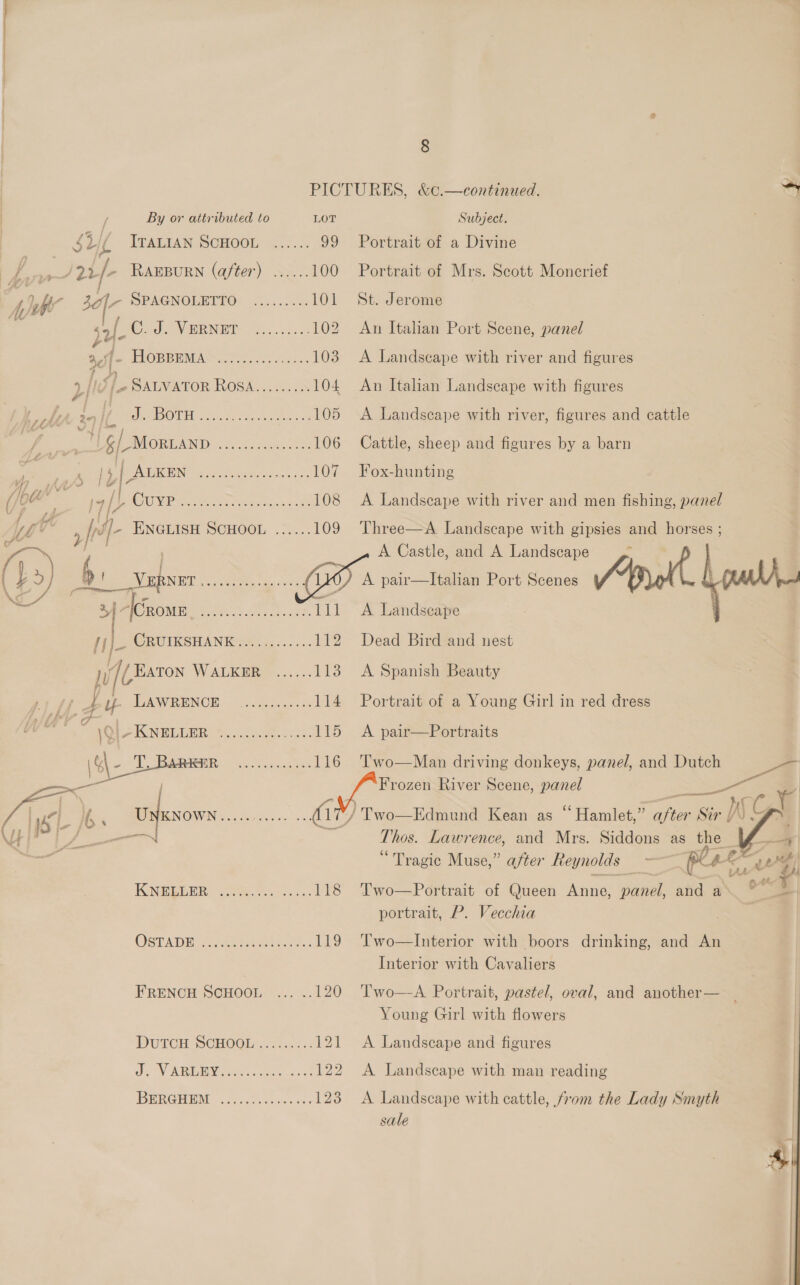 8
PICTURES, &c.—continued.
By or attributed to LOT Subject.
ITALIAN SCHOOL ...... 99 Portrait of a Divine
RAEBURN (after) ......100 Portrait of Mrs. Scott Moncrief
SPAGNOLETTO .........101 St. Jerome
C. J. VERNET .........102 An Italian Port Scene, panel
HOBBEMA ...............103 A Landscape with river and figures
SALVATOR ROSA.........104 An Italian Landscape with figures
J. BOTH ..................105 A Landscape with river, figures and cattle
MORLAND ...............106 Cattle, sheep and figures by a barn
ALKEN ..................107 Fox-hunting
CUYP .....................108 A Landscape with river and men fishing, panel
ENGLISH SCHOOL ......109 Three—A Landscape with gipsies and horses ;
A Castle, and A Landscape
VERNET .................. 110 A pair—Italian Port Scenes
CROME ..................111 A Landscape
CRUIKSHANK ............112 Dead Bird and nest
EATON WALKER ......113 A Spanish Beauty
LAWRENCE ............114 Portrait of a Young Girl in red dress
KNELLER ...............115 A pair—Portraits
T. BARKER ............116 Two—Man driving donkeys, panel, and Dutch
Frozen River Scene, panel
UNKNOWN............ ...117 Two—Edmund Kean as “Hamlet,” after Sir
Thos. Lawrence, and Mrs. Siddons as the
“Tragic Muse,” after Reynolds
KNELLER ......... ......118 Two—Portrait of Queen Anne, panel, and a
portrait, P. Vecchia
OSTADE ..................119 Two—Interior with boors drinking, and An
Interior with Cavaliers
FRENCH SCHOOL ... ..120 Two—A Portrait, pastel, oval, and another—
Young Girl with flowers
DUTCH SCHOOL .........121 A Landscape and figures
J. VARLEY............ ....122 A Landscape with man reading
BERGHEM ...............123 A Landscape with cattle, from the Lady Smyth
sale